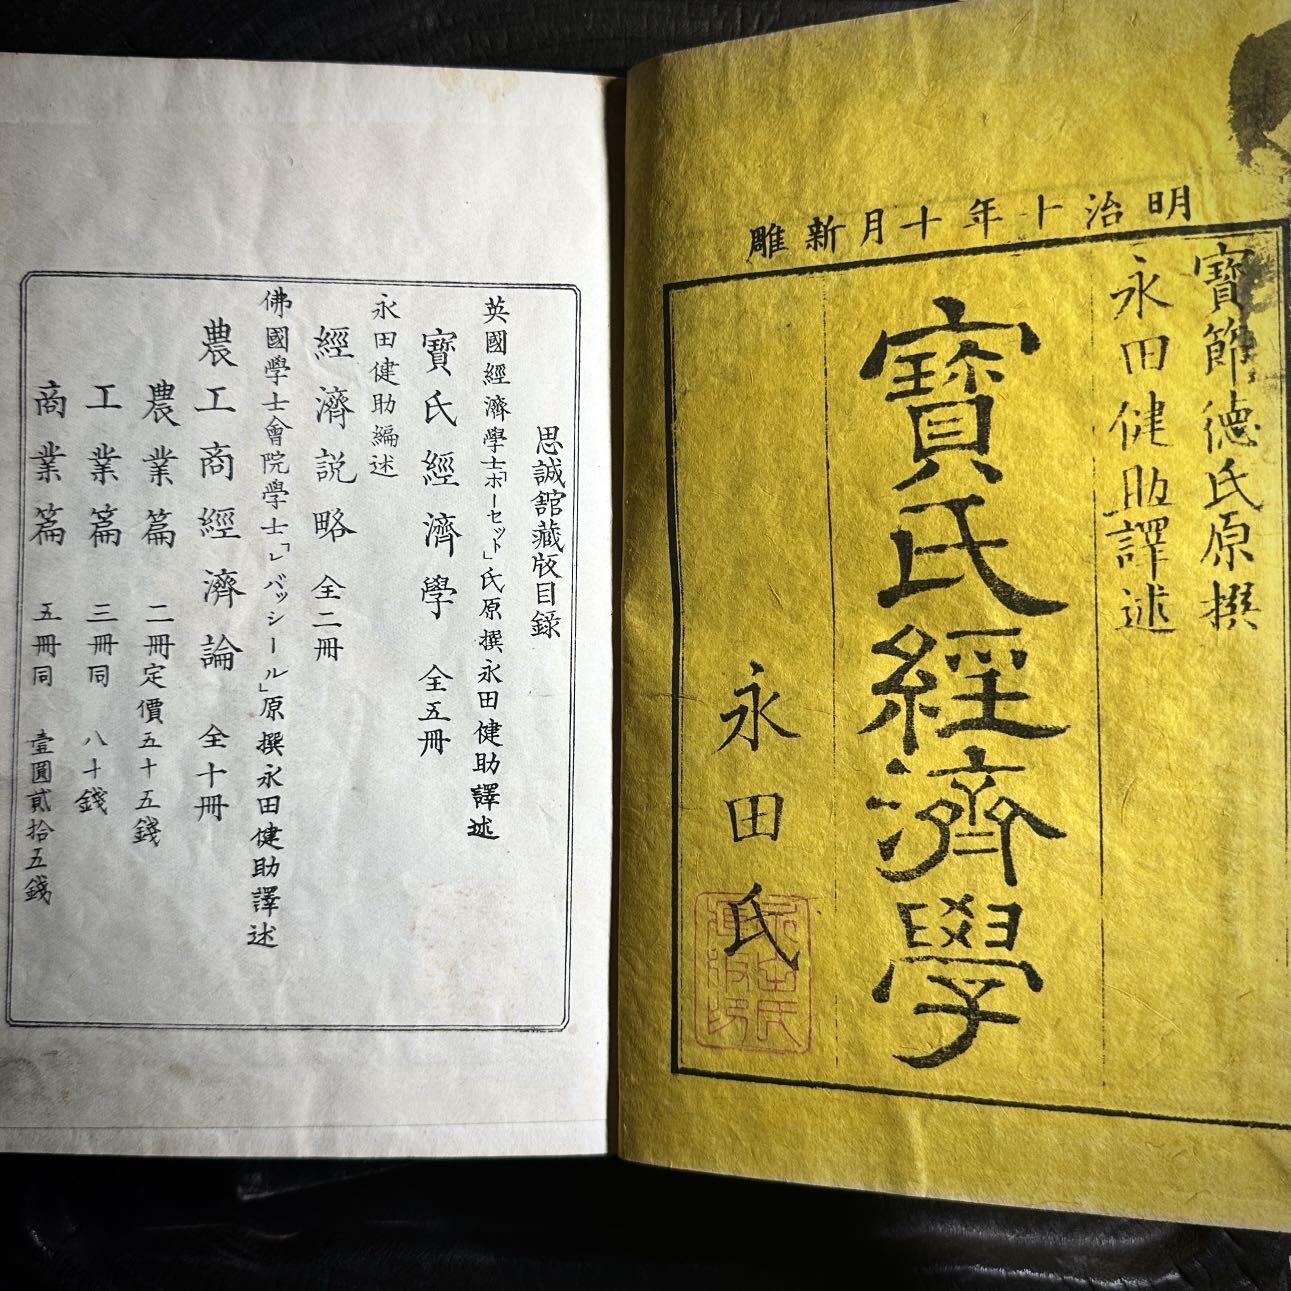 明治十年十月新雕
寶節德氏原撰
永田健助譯述
寶氏經濟學
永田氏
思誠舘藏版目錄
英國經濟學士「ホーセット」氏原撰永田健助譯述
寶氏經濟學 全五冊
永田健助編述
經濟説略 全二冊
佛國學士會院學士「レバッシール」原撰永田健助譯述
農工商經濟論 全十冊
農業篇 二冊定價五十五錢
工業篇 三冊同 八十錢
商業篇 五冊同 壹圓貳拾五錢